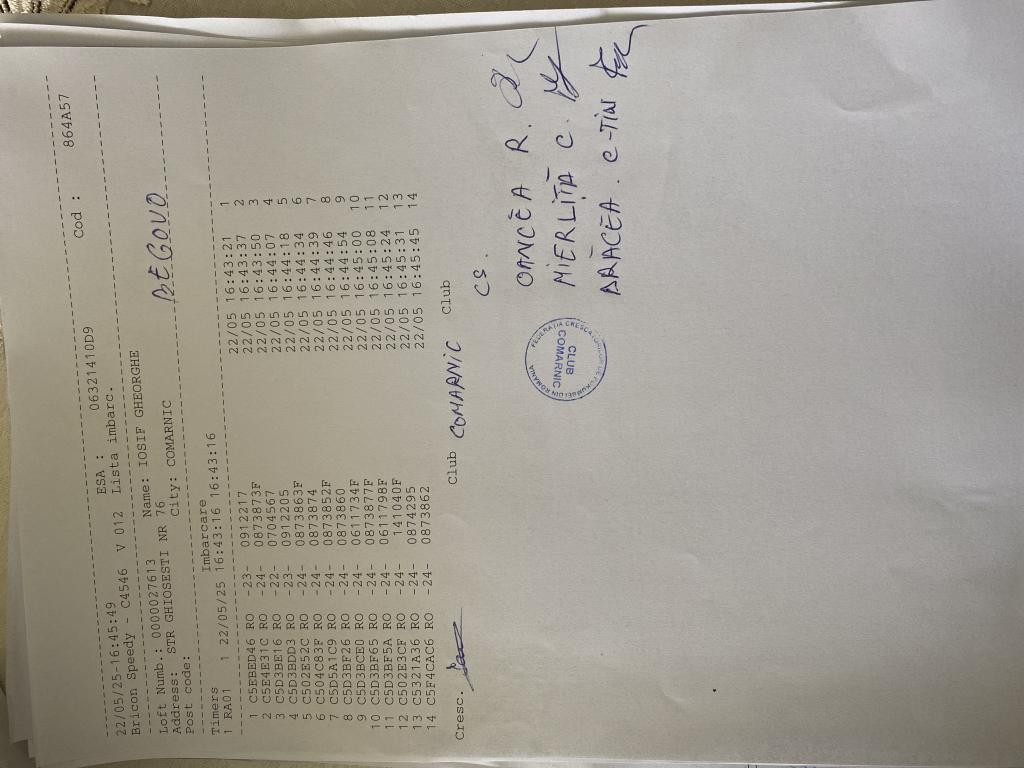 22/05/25-16:45:49 ESA : 06321410D9 Cod : 864A57
Bricon Speedy - C4546 V 012 Lista imbarc.
Loft Numb.: 0000027613 Name: IOSIF GHEORGHE
Address: STR GHIOSESTI NR 76 City: COMARNIC
Post code:
BEGOVO
Timers Imbarcare
1 RA01 1 22/05/25 16:43:16 16:43:16
1 C5EBED46 RO -23- 0912217 22/05 16:43:21 1
2 C5E4E31C RO -24- 0873873F 22/05 16:43:37 2
3 C5D3BE16 RO -22- 0704567 22/05 16:43:50 3
4 C5D3BDD3 RO -23- 0912205 22/05 16:44:07 4
5 C502E52C RO -24- 0873863F 22/05 16:44:18 5
6 C504C83F RO -24- 0873874 22/05 16:44:34 6
7 C5D5A1C9 RO -24- 0873852F 22/05 16:44:39 7
8 C5D3BF26 RO -24- 0873860 22/05 16:44:46 8
9 C5D3BCE0 RO -24- 0611734F 22/05 16:44:54 9
10 C5D3BF65 RO -24- 0873877F 22/05 16:45:00 10
11 C5D3BF5A RO -24- 0611798F 22/05 16:45:08 11
12 C502E3CF RO -24- 141040F 22/05 16:45:24 12
13 C5321A36 RO -24- 0874295 22/05 16:45:31 13
14 C5F4CAC6 RO -24- 0873862 22/05 16:45:45 14
Cresc. Club COMARNIC Club
CS.
OANCEA R.
MIERLIȚĂ C.
BRĂCEA. C-TIN
FEDERATIA CRESCATORILOR DE PORUMBEI DIN ROMANIA
CLUB
COMARNIC